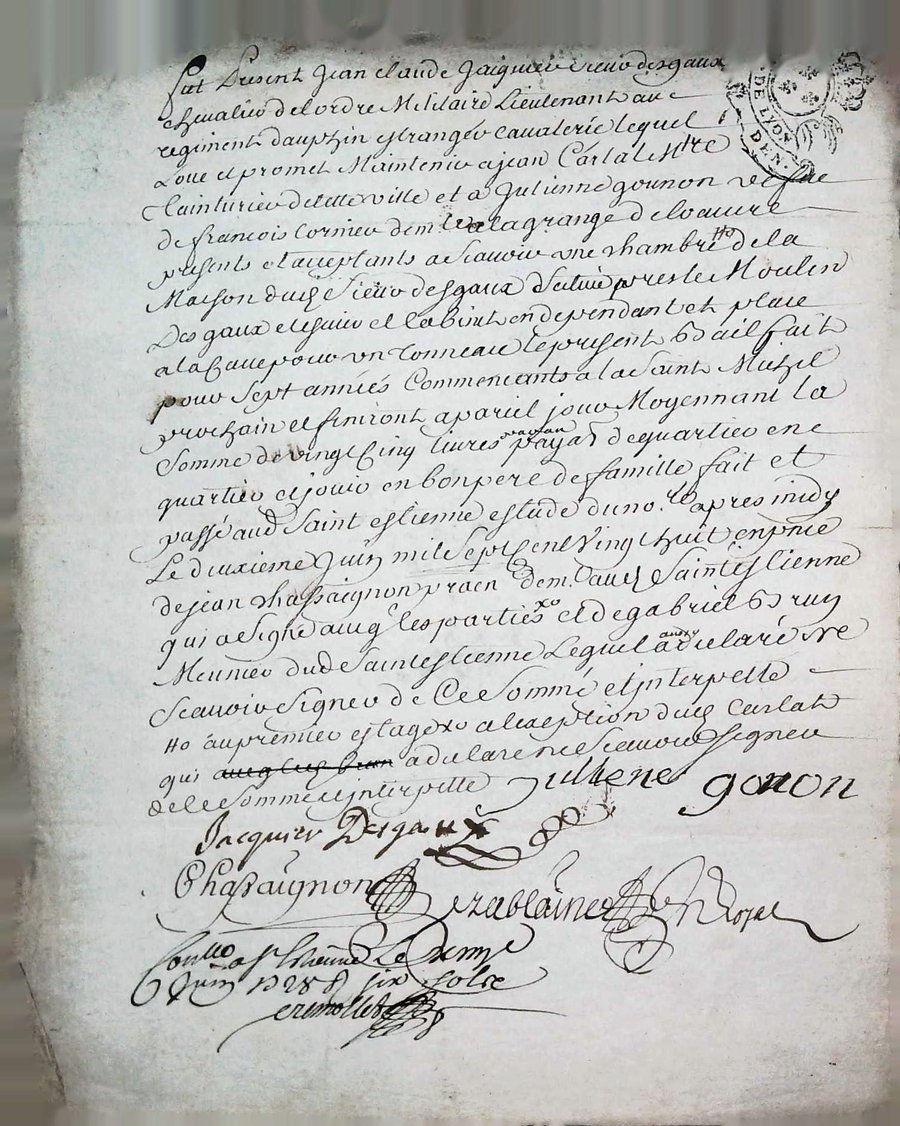 DE LYON
DEN.
fut Present Jean claude Jacquier sieur desgaux
chevalier de l ordre Militaire Lieutenant au
regiment dauphin estranger cavalerie lequel
Loue et promet Maintenir a jean Carlat Mtre
tainturier de cette ville et a Julienne gounon vefve
de francois Cornier dem. a la grange de loeuvre
presents et acceptants a Scavoir une chambre Ho de la
Maison dud Sieur desgaux Scituée pres le Moulin
Des gaux et cabinet en dependant et place
a la Cave pour un tonneau le present Bail fait
pour Sept années Commencants a la Saint Michel
prochain et finiront a pareil jour Moyennant la
Somme de vingt Cinq livres payable de quartier en
quartier et jouir en bon pere de famille fait et
passé aud Saint estienne estude du no.re apres midy
Le deuxieme Juin mil Sept Cent Vingt huit en pnce
de jean chassaignon praen dem. aud Saint estienne
qui a Signé avecq les parties xo et de gabriel Brun
Meunier dud Saint estienne Lequel aussy a declaré ne
Scavoir Signer de Ce Sommé et interpellé
Ho au premier estage xo a lexception dud Carlat
qui a declaré ne Scavoir Signer
de Ce Sommé et interpellé Julliene gonon
Jacquier Desgaux
Chassaignon Royal
Conllo a St Etienne Le
Juin 1728 six sols